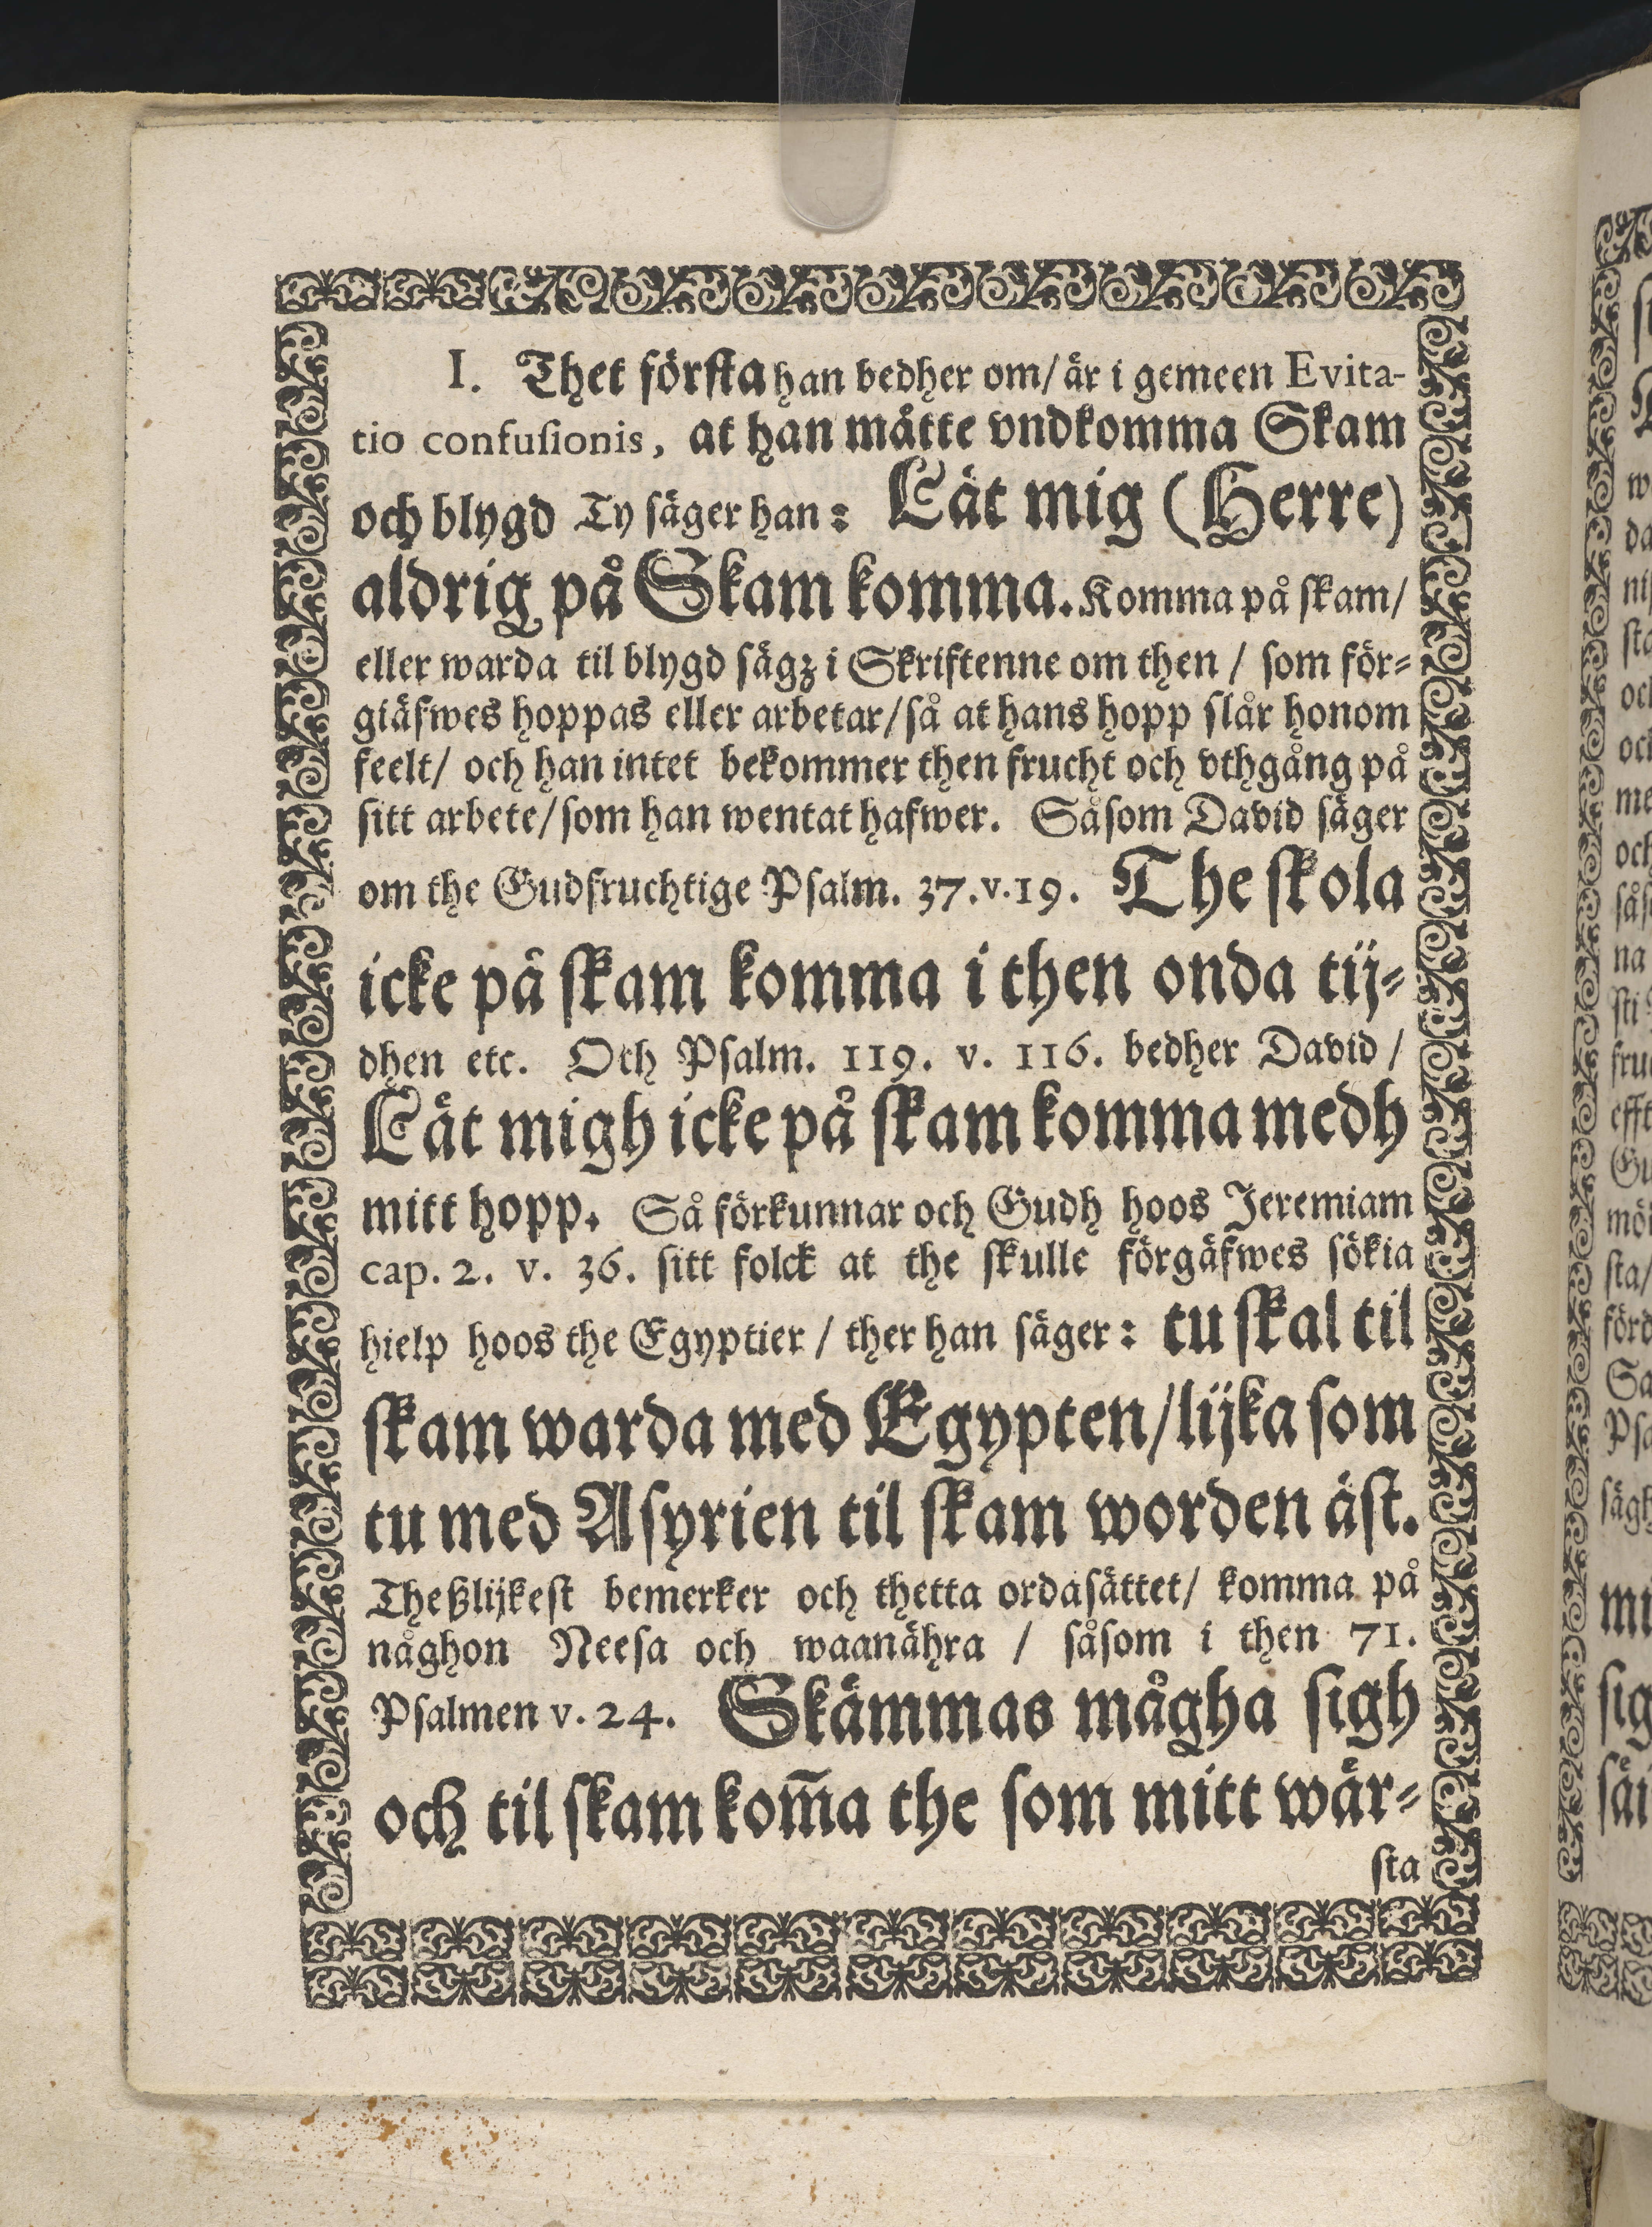 I. Thet första han bedher om/ är i gemeen Evita-
tio confusionis, at han måtte vndkomma Skam
och blygd Ty säger han: Låt mig (Herre)
aldrig på Skam komma. Komma på skam/
eller warda til blygd sägz i Skriftenne om then / som för-
giäfwes hoppas eller arbetar/ så at hans hopp slår honom
feelt/ och han intet bekommer then frucht och vthgång på
sitt arbete/ som han wentat hafwer. Såsom David säger
om the Gudfruchtige Psalm. 37.v.19. The skola
icke på skam komma i then onda tij-
dhen etc. Och Psalm. 119. v. 116. bedher David /
Låt migh icke på skam komma medh
mitt hopp. Så förkunnar och Gudh hoos Jeremiam
cap. 2. v. 36. sitt folck at the skulle förgäfwes sökia
hielp hoos the Egyptier / ther han säger: tu skal til
skam warda med Egypten/ lijka som
tu med Asyrien til skam worden äst.
Theßlijkest bemerker och thetta ordasättet/ komma på
någhon Neesa och waanähra / såsom i then 71.
Psalmen v. 24. Skämmas mågha sigh
och til skam kom̃a the som mitt wär-
sta